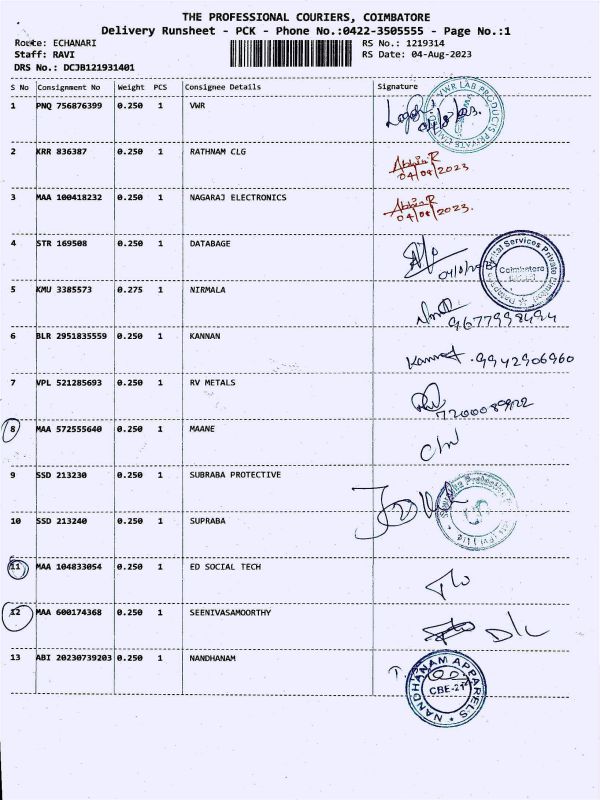 THE PROFESSIONAL COURIERS, COIMBATORE
Delivery Runsheet - PCK - Phone No.:0422-3505555 - Page No.:1
Route: ECHANARI RS No.: 1219314
Staff: RAVI RS Date: 04-Aug-2023
DRS No.: DCJB121931401
S No Consignment No Weight PCS Consignee Details Signature
1 PNQ 756876399 0.250 1 VWR
VWR LAB PRODUCTS PRIVATE
2 KRR 836387 0.250 1 RATHNAM CLG
04/08/2023
3 MAA 100418232 0.250 1 NAGARAJ ELECTRONICS
04/08/2023.
4 STR 169508 0.250 1 DATABAGE
Digital Services Private Limited
Coimbatore
5 KMU 3385573 0.275 1 NIRMALA
9677998494
6 BLR 2951835559 0.250 1 KANNAN
9942906960
7 VPL 521285693 0.250 1 RV METALS
8 MAA 572555640 0.250 1 MAANE
9 SSD 213230 0.250 1 SUBRABA PROTECTIVE
10 SSD 213240 0.250 1 SUPRABA
11 MAA 104833054 0.250 1 ED SOCIAL TECH
12 MAA 600174368 0.250 1 SEENIVASAMOORTHY
D/L
13 ABI 20230739203 0.250 1 NANDHANAM
NANDHANAM APPARELS
CBE-21